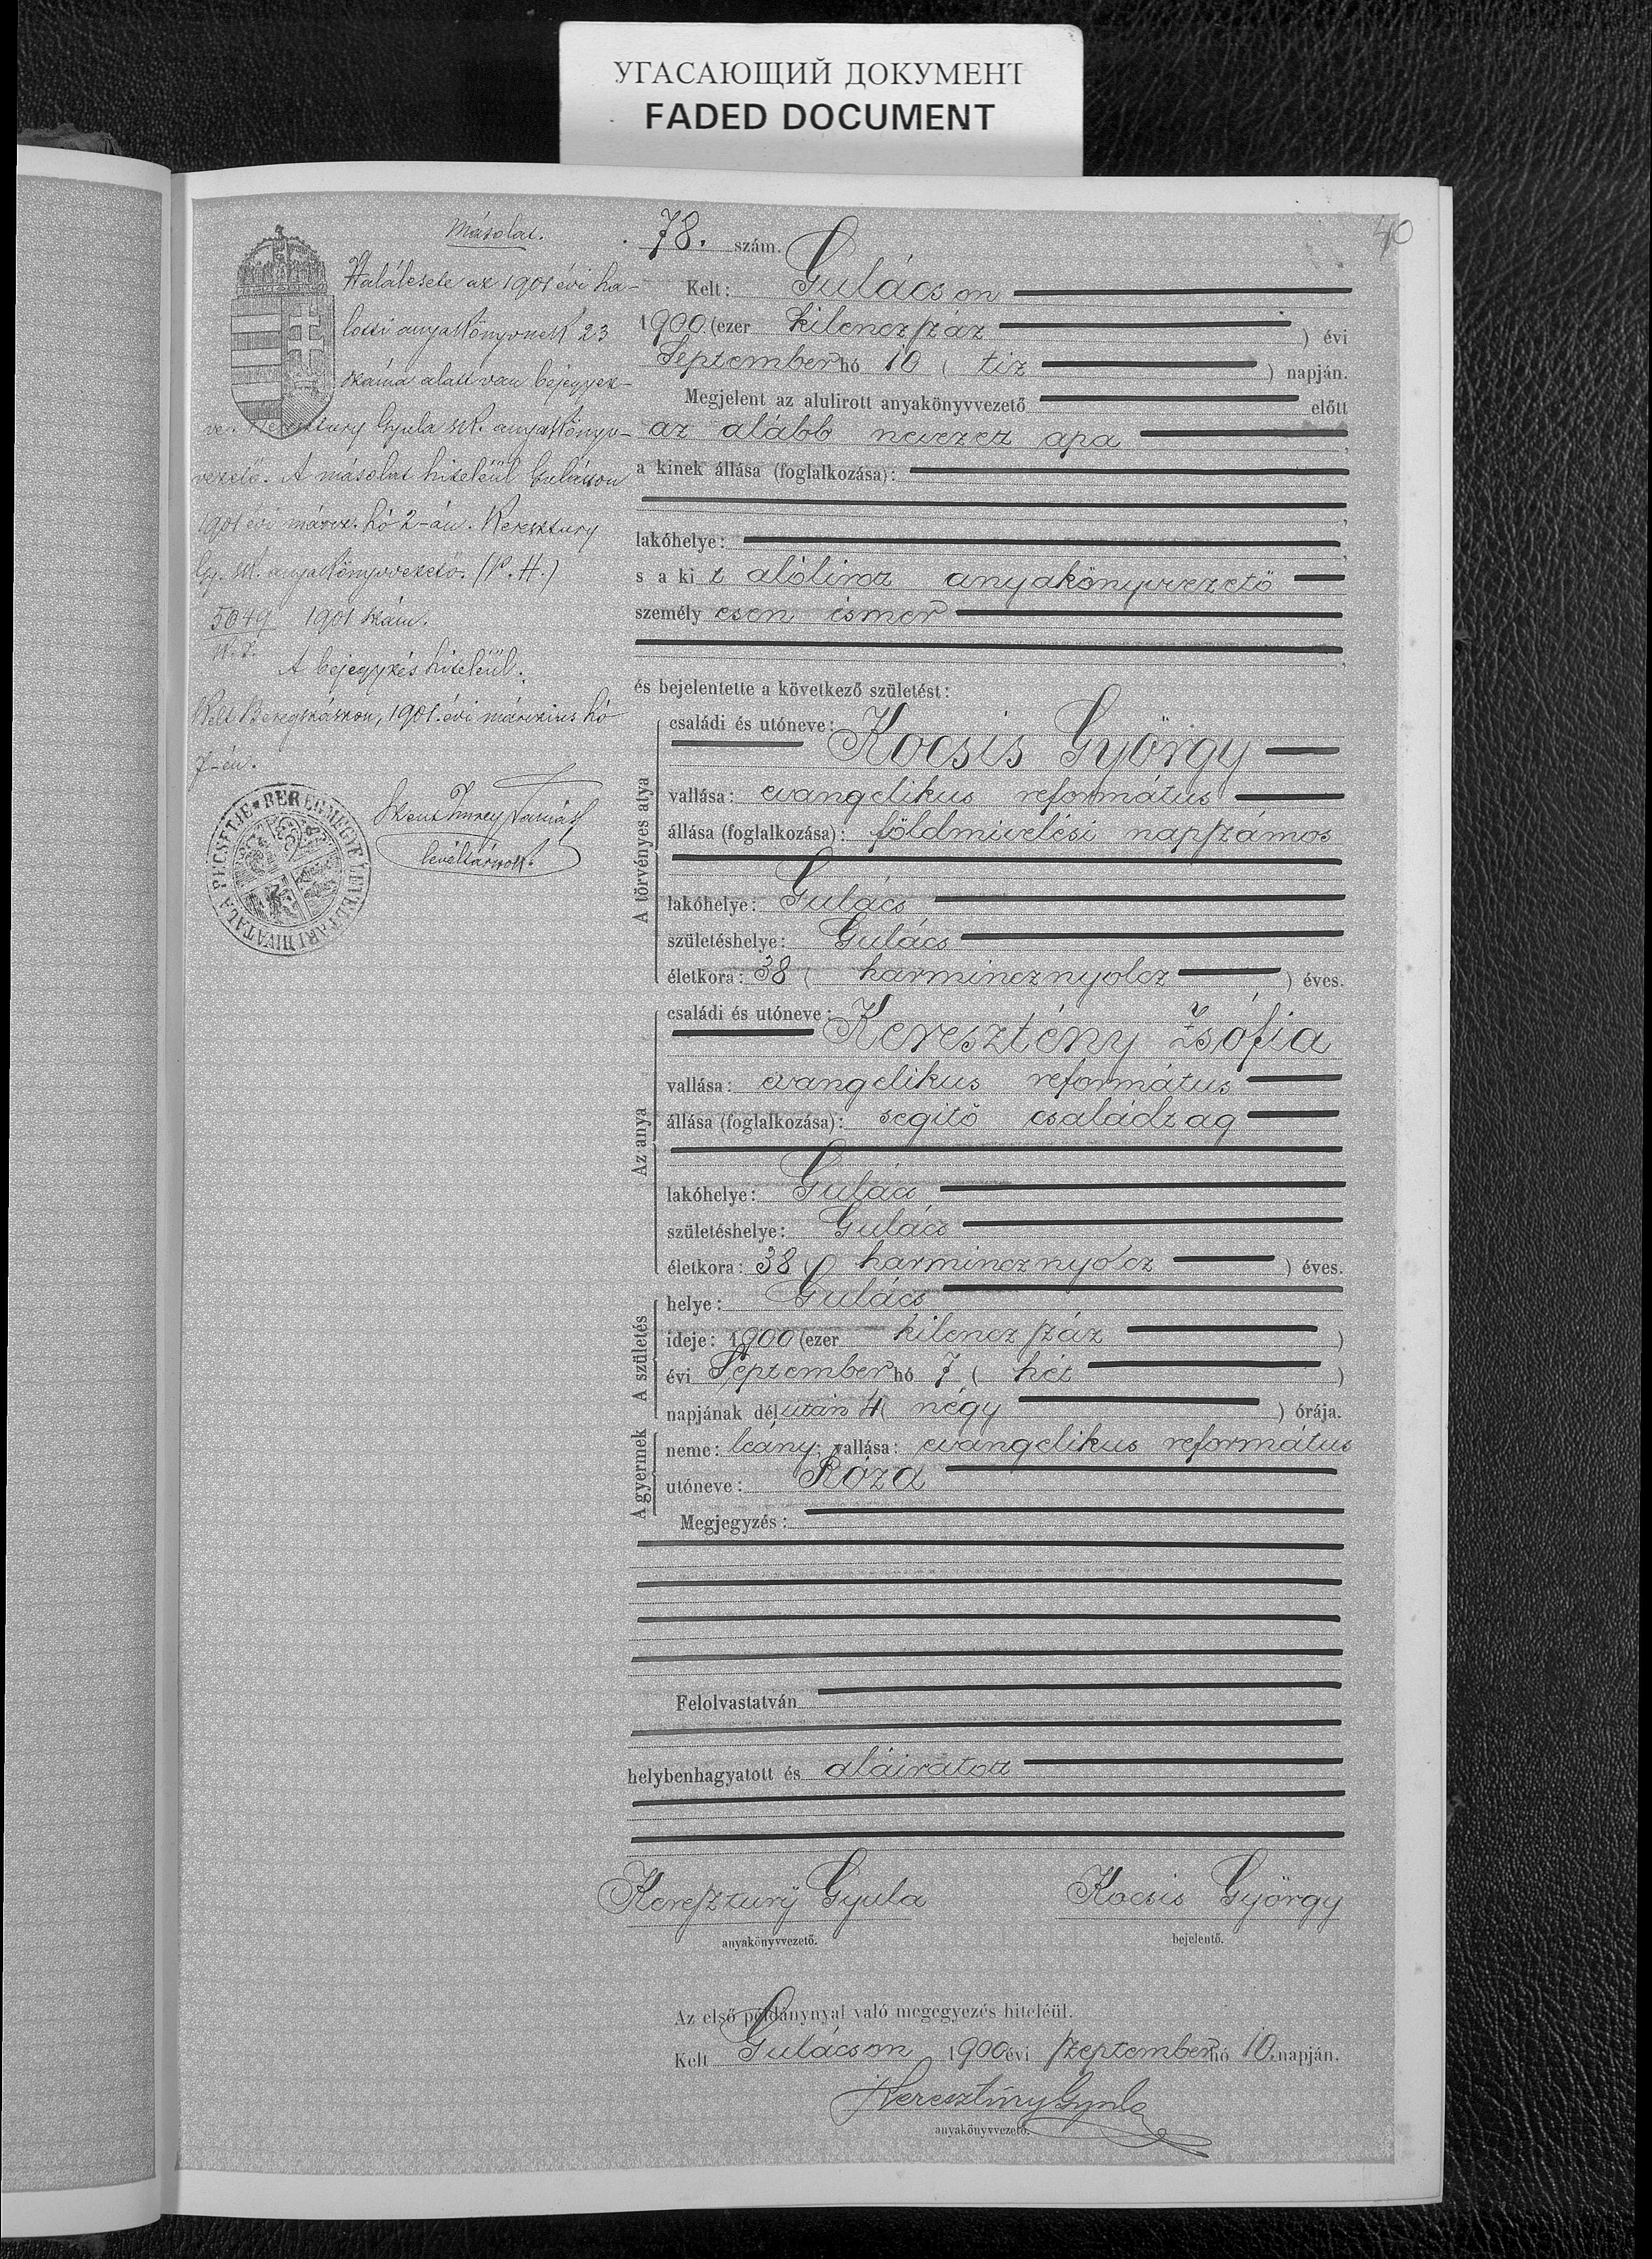 УГАСАЮЩИЙ ДОКУМЕНТ
FADED DOCUMENT
40
Másolat.
Halálesete az 1901 évi ha-
lotti anyakönyvnek 23
száma alatt van bejegyez-
ve. Keresztury Gyula sk. anyakönyv-
vezető. A másolat hiteléül Gulácson
1901 évi márcz. hó 2-án. Keresztury
Gy. sk. anyakönyvvezető. (P. H.)
5049 1901 szám.
A bejegyzés hiteléül:
Kelt Beregszászon, 1901. évi márczius hó
7-én.
levéltárnok.
BEREGMEGYE LEVÉLTÁRI HIVATALA PECSÉTJE
78. szám.
Kelt: Gulácson
1900. (ezer kilenczszáz ) évi
September hó 10 ( tiz ) napján.
Megjelent az alulirott anyakönyvvezető előtt
az alább nevezett apa ,
a kinek állása (foglalkozása):
,
lakóhelye: ,
s a ki t alólirott anyakönyvvezető
személy esen ismer
.
és bejelentette a következő születést:
A törvényes atya
családi és utóneve:
Kocsis György
vallása: evangelikus református
állása (foglalkozása): földmivelési napszámos
lakóhelye: Gulács
születéshelye: Gulács
életkora: 38 ( harmincznyolcz ) éves.
Az anya
családi és utóneve:
Keresztény Zsófia
vallása: evangelikus református
állása (foglalkozása): segitő családtag
lakóhelye: Gulács
születéshelye: Gulács
életkora: 38 ( harmincznyolcz ) éves.
A születés
helye: Gulács
ideje: 1900 (ezer kilenczszáz )
évi September hó 7 ( hét )
napjának délután 4 ( négy ) órája.
A gyermek
neme: leány; vallása: evangelikus református
utóneve: Róza
Megjegyzés:
Felolvastatván
helybenhagyatott és aláiratott
Keresztury Gyula Kocsis György
anyakönyvvezető. bejelentő.
Az első példánynyal való megegyezés hiteléül.
Kelt Gulácson 1900 évi szeptember hó 10. napján.
Keresztúry Gyula
anyakönyvvezető.